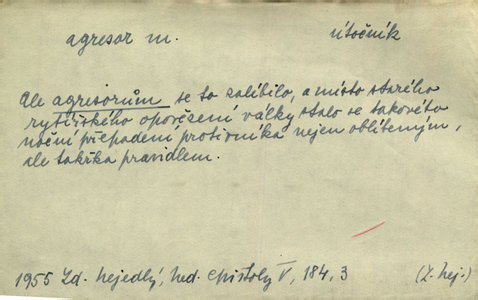 agresor m. útočník
Ale agresorům se to zalíbilo, a místo starého
rytířského opovězení války stalo se takovéto
noční přepadení protivníka nejen oblíbeným,
ale takřka pravidlem.
1955 Zd. Nejedlý, Ned. epištoly V, 184, 3 (Z. Nej.)